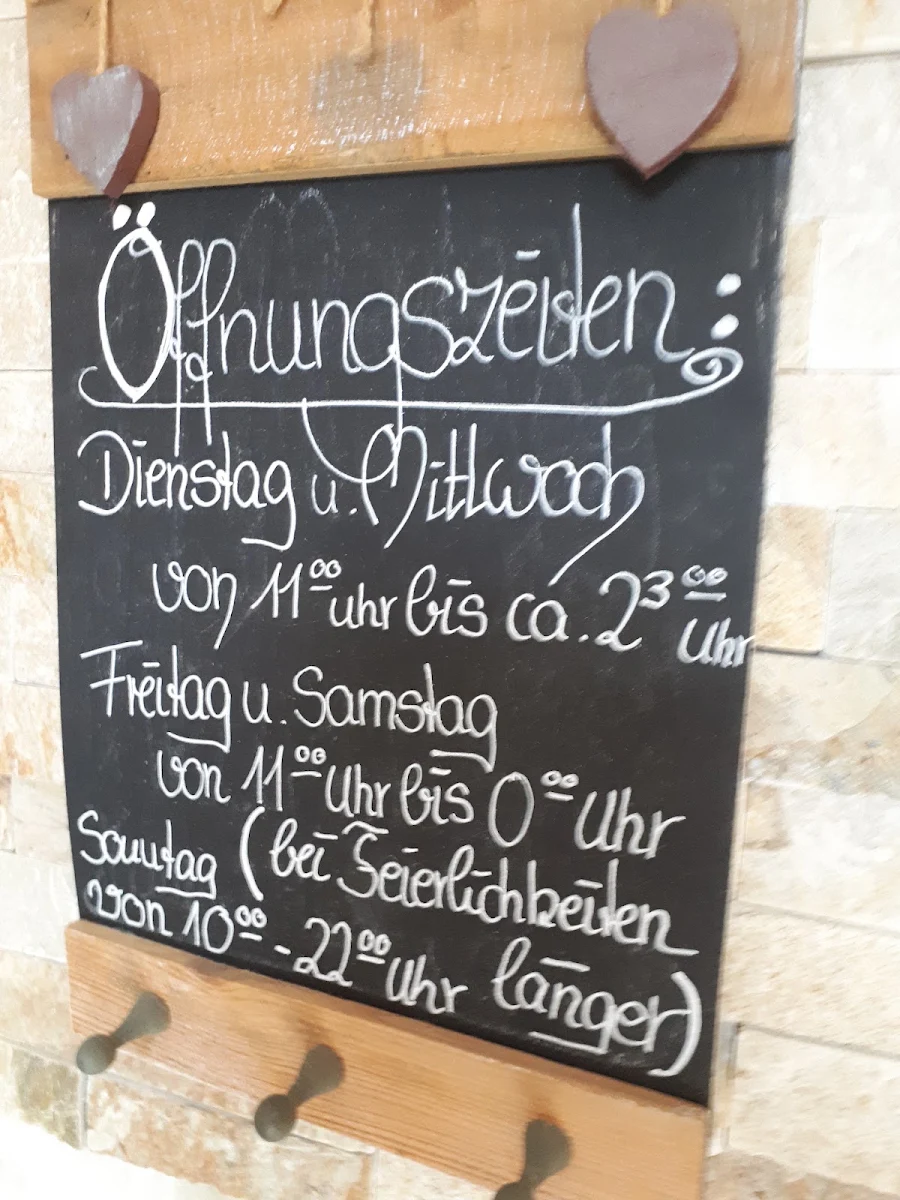 Öffnungszeiten:
Dienstag u. Mittwoch
von 11⁰⁰ uhr bis ca. 23⁰⁰
Uhr
Freitag u. Samstag
von 11⁰⁰ Uhr bis 0⁰⁰ Uhr
Sonntag (bei Feierlichkeiten
von 10⁰⁰ - 22⁰⁰ Uhr länger)